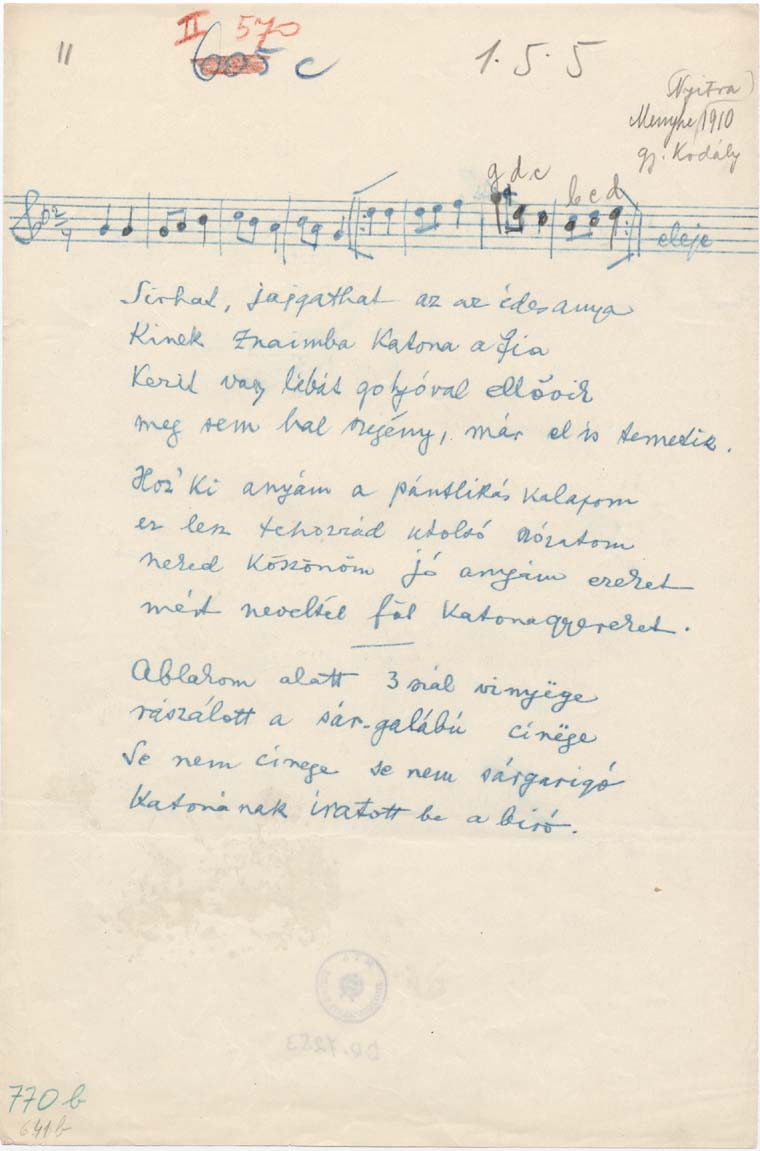 II 570
11
605 c
1. 5. 5
(Nyitra)
Menyhe 1910
gj. Kodály
g d c
b c d
2
4
eleje
Sirhat, jajgathat az az édes anya
Kinek Znaimba Katona a fia
Kezit vagy lábát golyóval ellövik
meg sem hal szegény, már el is temetik.
Hoz' ki anyám a pántlikás kalapom
ez lesz tehozzád utolsó szózatom
neked köszönöm jó anyám ezeket
mért neveltél föl katonagyereket.
Ablakom alatt 3 szál vinyëge
rászálott a sár-galábú cinëge
Se nem cinege se nem sárgarigó
Katonának iratott be a biró.
770 b
641 b